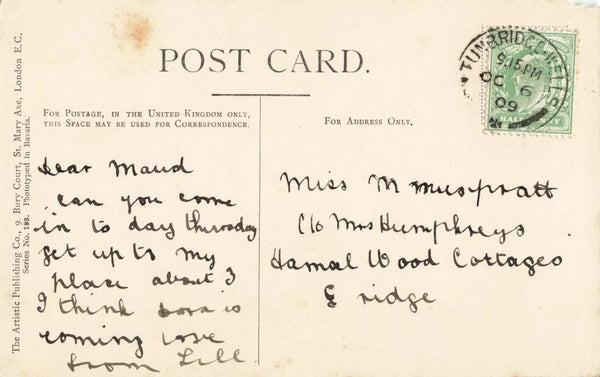 POST CARD.
FOR POSTAGE, IN THE UNITED KINGDOM ONLY,
THIS SPACE MAY BE USED FOR CORRESPONDENCE.
Dear Maud
can you come
in to day thursday
get up to my
place about 3
I think is
coming love
from Lill
FOR ADDRESS ONLY.
Miss M Muspratt
C/o Mrs Humphreys
Hamal Wood Cottages
Eridge
TUNBRIDGE WELLS
9.15 PM
OC 6
09
HALFPENNY
The Artistic Publishing Co., 9, Bury Court, St. Mary Axe, London E.C.
Series No. 198. Phototyped in Bavaria.